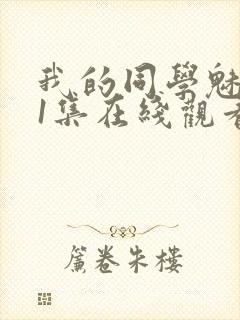 我的同學魅
1集在綫觀看
簾卷朱樓